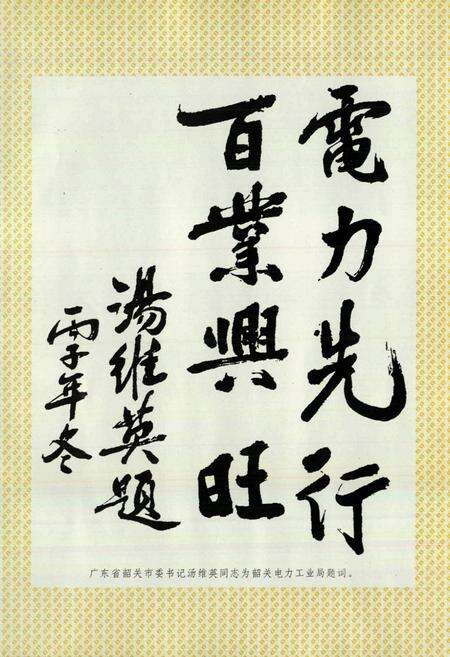 電力先行
百業興旺
湯維英題
丙子年冬
广东省韶关市委书记汤维英同志为韶关电力工业局题词。